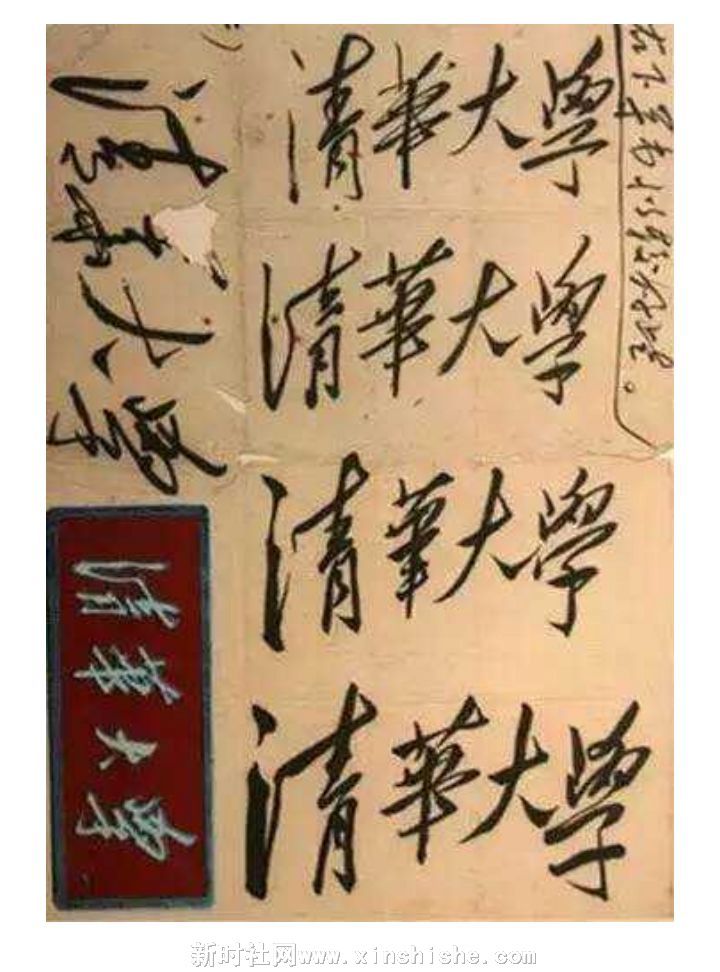 清華大學
清華大學
清華大學
清華大學
清華大學
清華大學
新时社网www.xinshishe.com